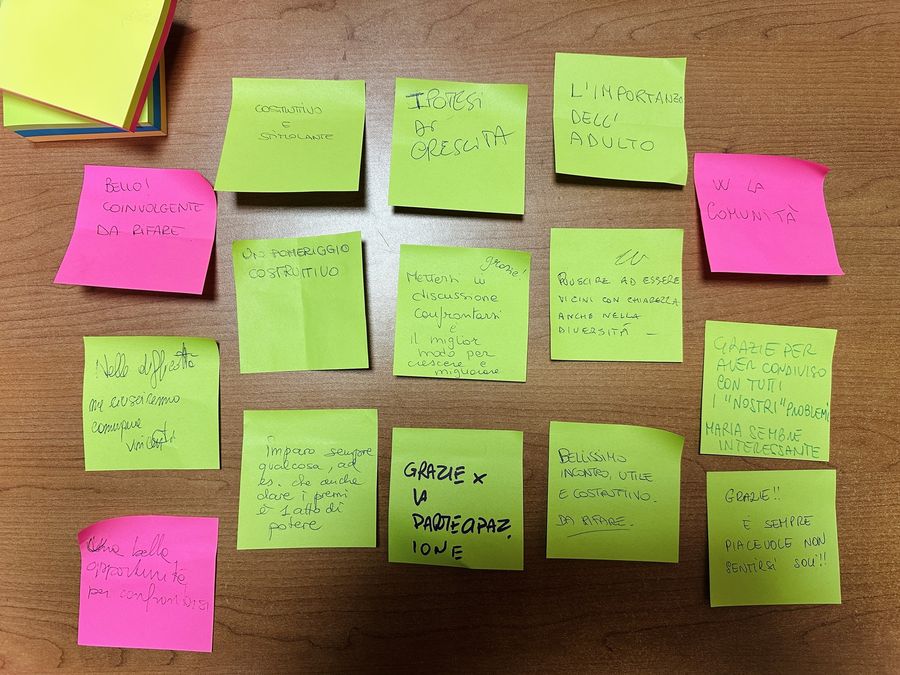 COSTRUTTIVO
E
STIMOLANTE
IPOTESI
DI
CRESCITA
L'IMPORTANZA
DELL'
ADULTO
BELLO!
COINVOLGENTE
DA RIFARE
W LA
COMUNITÀ
UN POMERIGGIO
COSTRUTTIVO
grazie!
Mettersi in
discussione
confrontarsi
è
il miglior
modo per
crescere e
migliorare
RIUSCIRE AD ESSERE
VICINI CON CHIAREZZA
ANCHE NELLA
DIVERSITÀ
GRAZIE PER
AVER CONDIVISO
CON TUTTI
I "NOSTRI" PROBLEMI
MARIA SEMBRE
INTERESSANTE
Nelle difficoltà
ne usciremo
comunque
vincenti
imparo sempre
qualcosa, ad
es. che anche
dare i premi
è 1 atto di
potere
GRAZIE x
LA
PARTECIPAZ
IONE
BELISSIMO
INCONTRO, UTILE
E COSTRUTTIVO.
DA RIFARE.
GRAZIE!!
È SEMPRE
PIACEVOLE NON
SENTIRSI SOLI!!
Una bella
opportunità
per confrontarsi